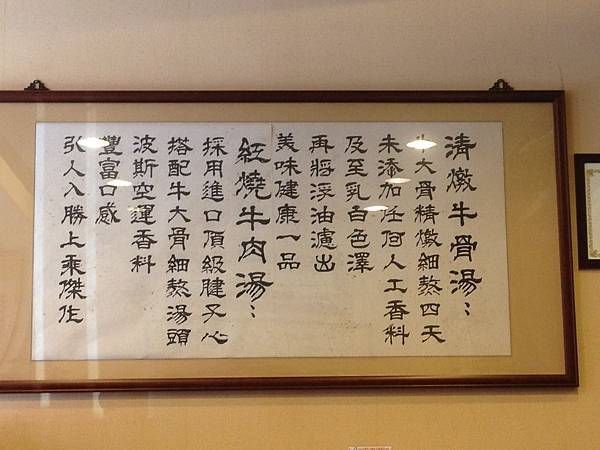 清燉牛骨湯：
牛大骨精燉細熬四天
未添加任何人工香料
及至乳白色澤
再將浮油濾出
美味健康一品
紅燒牛肉湯：
採用進口頂級腱子心
搭配牛大骨細熬湯頭
波斯空運香料
豐富口感
引人入勝上乘傑作